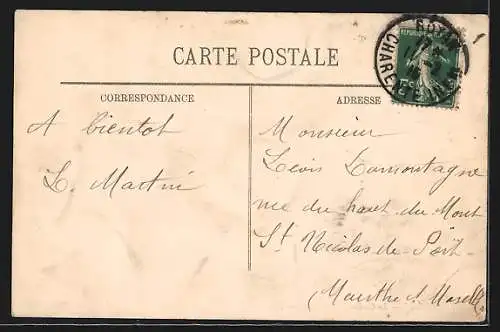 CARTE POSTALE
CORRESPONDANCE
A bientot
L. Martin
ADRESSE
Monsieur
Louis Lamontagne
rue du haut du Mont
St Nicolas de Port
Meurthe & Moselle
ROYAN